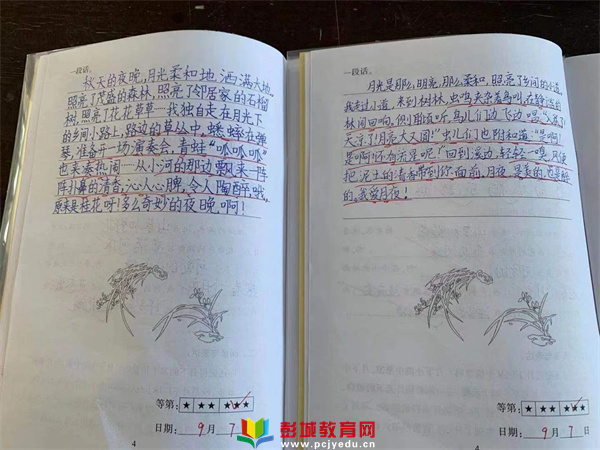 一段话。
秋天的夜晚,月光柔和地洒满大地,
照亮了茂盛的森林,照亮了邻居家的石榴
树,照亮了花花草草…我独自走在月光下
的乡间小路上,路边的草丛中,蟋蟀在弹
琴,准备开一场演奏会,青蛙“呱呱呱”
也来凑热闹…从小河的那边飘来一阵
阵扑鼻的清香,沁人心脾,令人陶醉哦,
原来是桂花呀!多么奇妙的夜晚啊!
等第:
★ ★★ ★★★
日期: 9 月 7 日
4
一段话。
月光是那么明亮,那么柔和,照亮了乡间的小道,
我走过小道,来到树林,虫鸣夹杂着鸟叫,在静谧的
林间回响,侧耳倾听,鸟儿们边飞边唱“今天
月亮又大又圆!”虫儿们也附和道:“是啊!
是啊!”回到溪边,轻轻一嗅,风便
把泥土的清香带到你面前,月夜是美的,也是醉
的,我爱月夜!
等第:
★ ★★ ★★★
日期: 9 月 7 日
4
彭城教育网
www.pcjyedu.cn